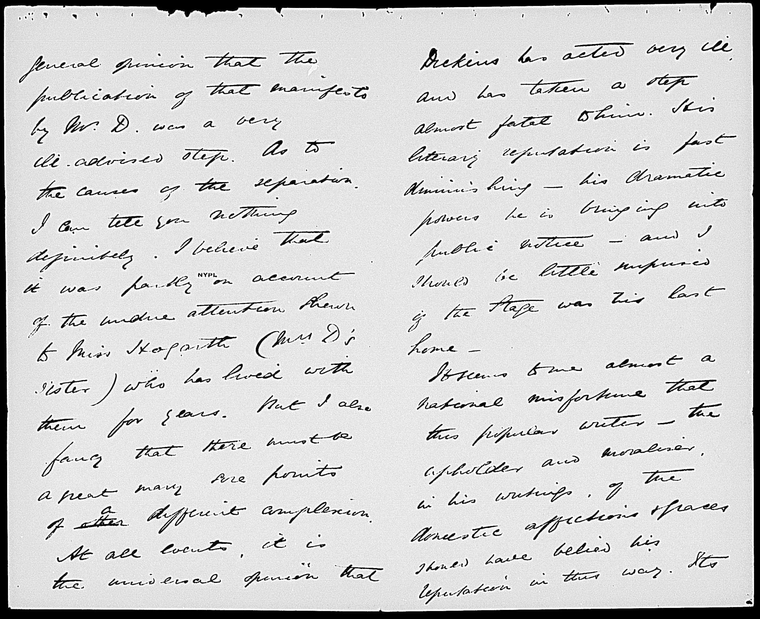 general opinion that the
publication of that manifesto
by Mr. D. was a very
ill-advised step. As to
the causes of the separation.
I can tell you nothing
definitely. I believe that
it was partly on account
NYPL
of the undue attention shewn
to Miss Hogarth (Mrs D's
sister) who has lived with
them for years. But I also
fancy that there must be
a great many sore points
of other a different complexion.
At all events, it is
the universal opinion that
Dickens has acted very ill,
and has taken a step
almost fatal to him. His
literary reputation is fast
diminishing — his dramatic
powers he is bringing into
public notice — and I
should be little surprised
if the Stage was his last
home —
It seems to me almost a
national misfortune that
this popular writer — the
upholder and moraliser,
in his writings, of the
domestic affections & graces
should have belied his
reputation in this way. Its